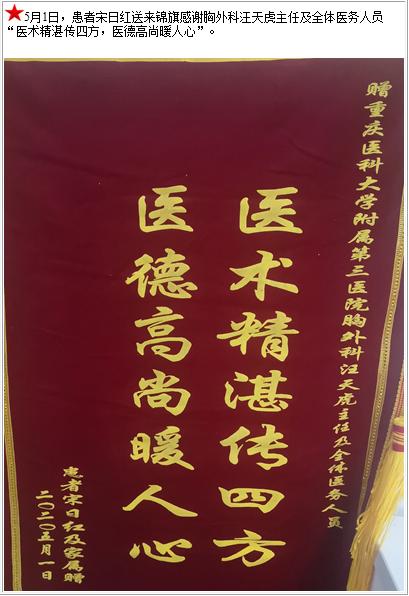 5月1日,患者宋日红送来锦旗感谢胸外科汪天虎主任及全体医务人员
“医术精湛传四方,医德高尚暖人心”。
赠重庆医科大学附属第三医院胸外科汪天虎主任及全体医务人员
医术精湛传四方
医德高尚暖人心
患者宋日红及家属赠
二〇二〇五月一日